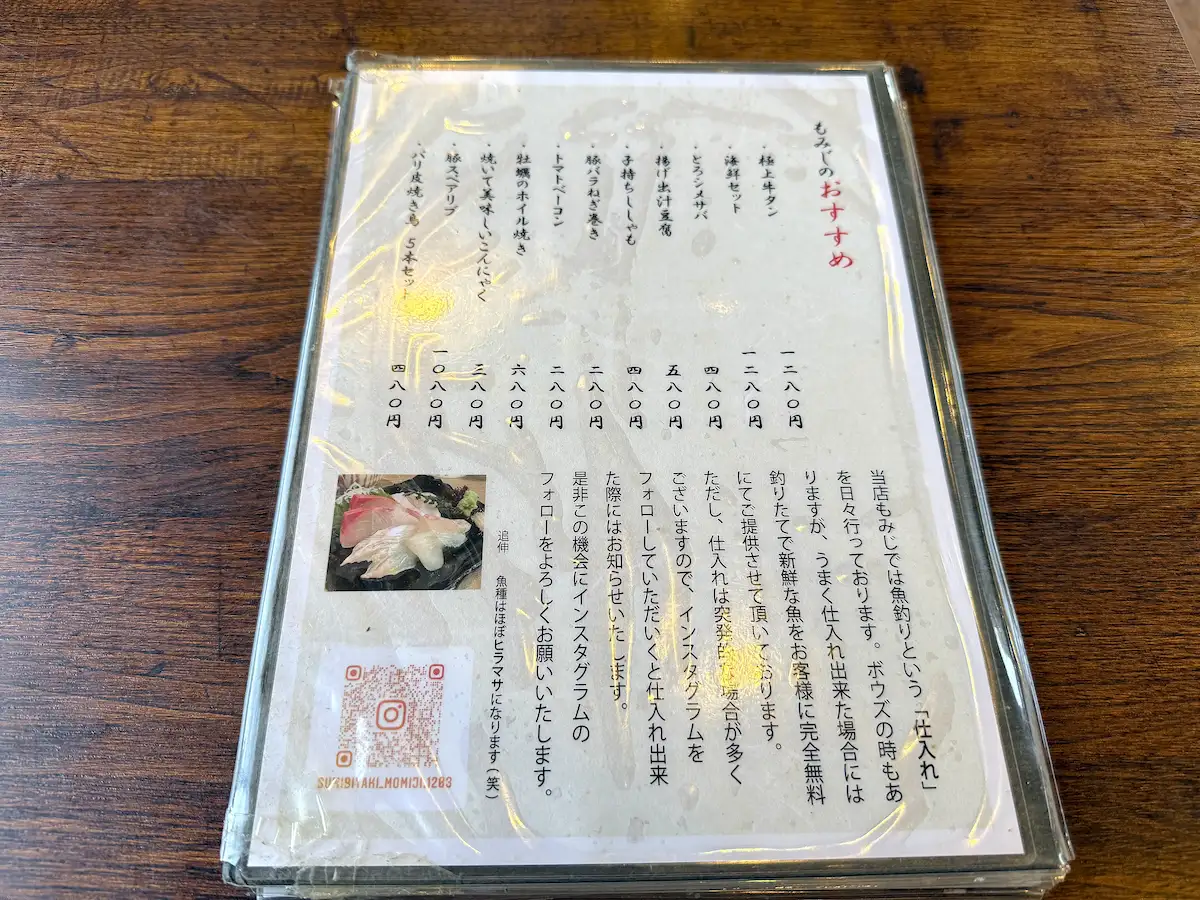 もみじのおすすめ
・極上牛タン 一二八〇円
・海鮮セット 一二八〇円
・とろシメサバ 四八〇円
・揚げ出汁豆腐 五八〇円
・子持ちししゃも 四八〇円
・豚バラねぎ巻き 二八〇円
・トマトベーコン 二八〇円
・牡蠣のホイル焼き 六八〇円
・焼いて美味しいこんにゃく 三八〇円
・豚スペアリブ 一〇八〇円
・パリ皮焼き鳥 5本セット 四八〇円
当店もみじでは魚釣りという「仕入れ」
を日々行っております。ボウズの時もあ
りますが、うまく仕入れ出来た場合には
釣りたてで新鮮な魚をお客様に完全無料
にてご提供させて頂いております。
ただし、仕入れは突発的な場合が多く
ございますので、インスタグラムを
フォローしていただいくと仕入れ出来
た際にはお知らせいたします。
是非この機会にインスタグラムの
フォローをよろしくお願いいたします。
追伸 魚種はほぼヒラマサになります(笑)
SUMIBIYAKI_MOMIJI.1203